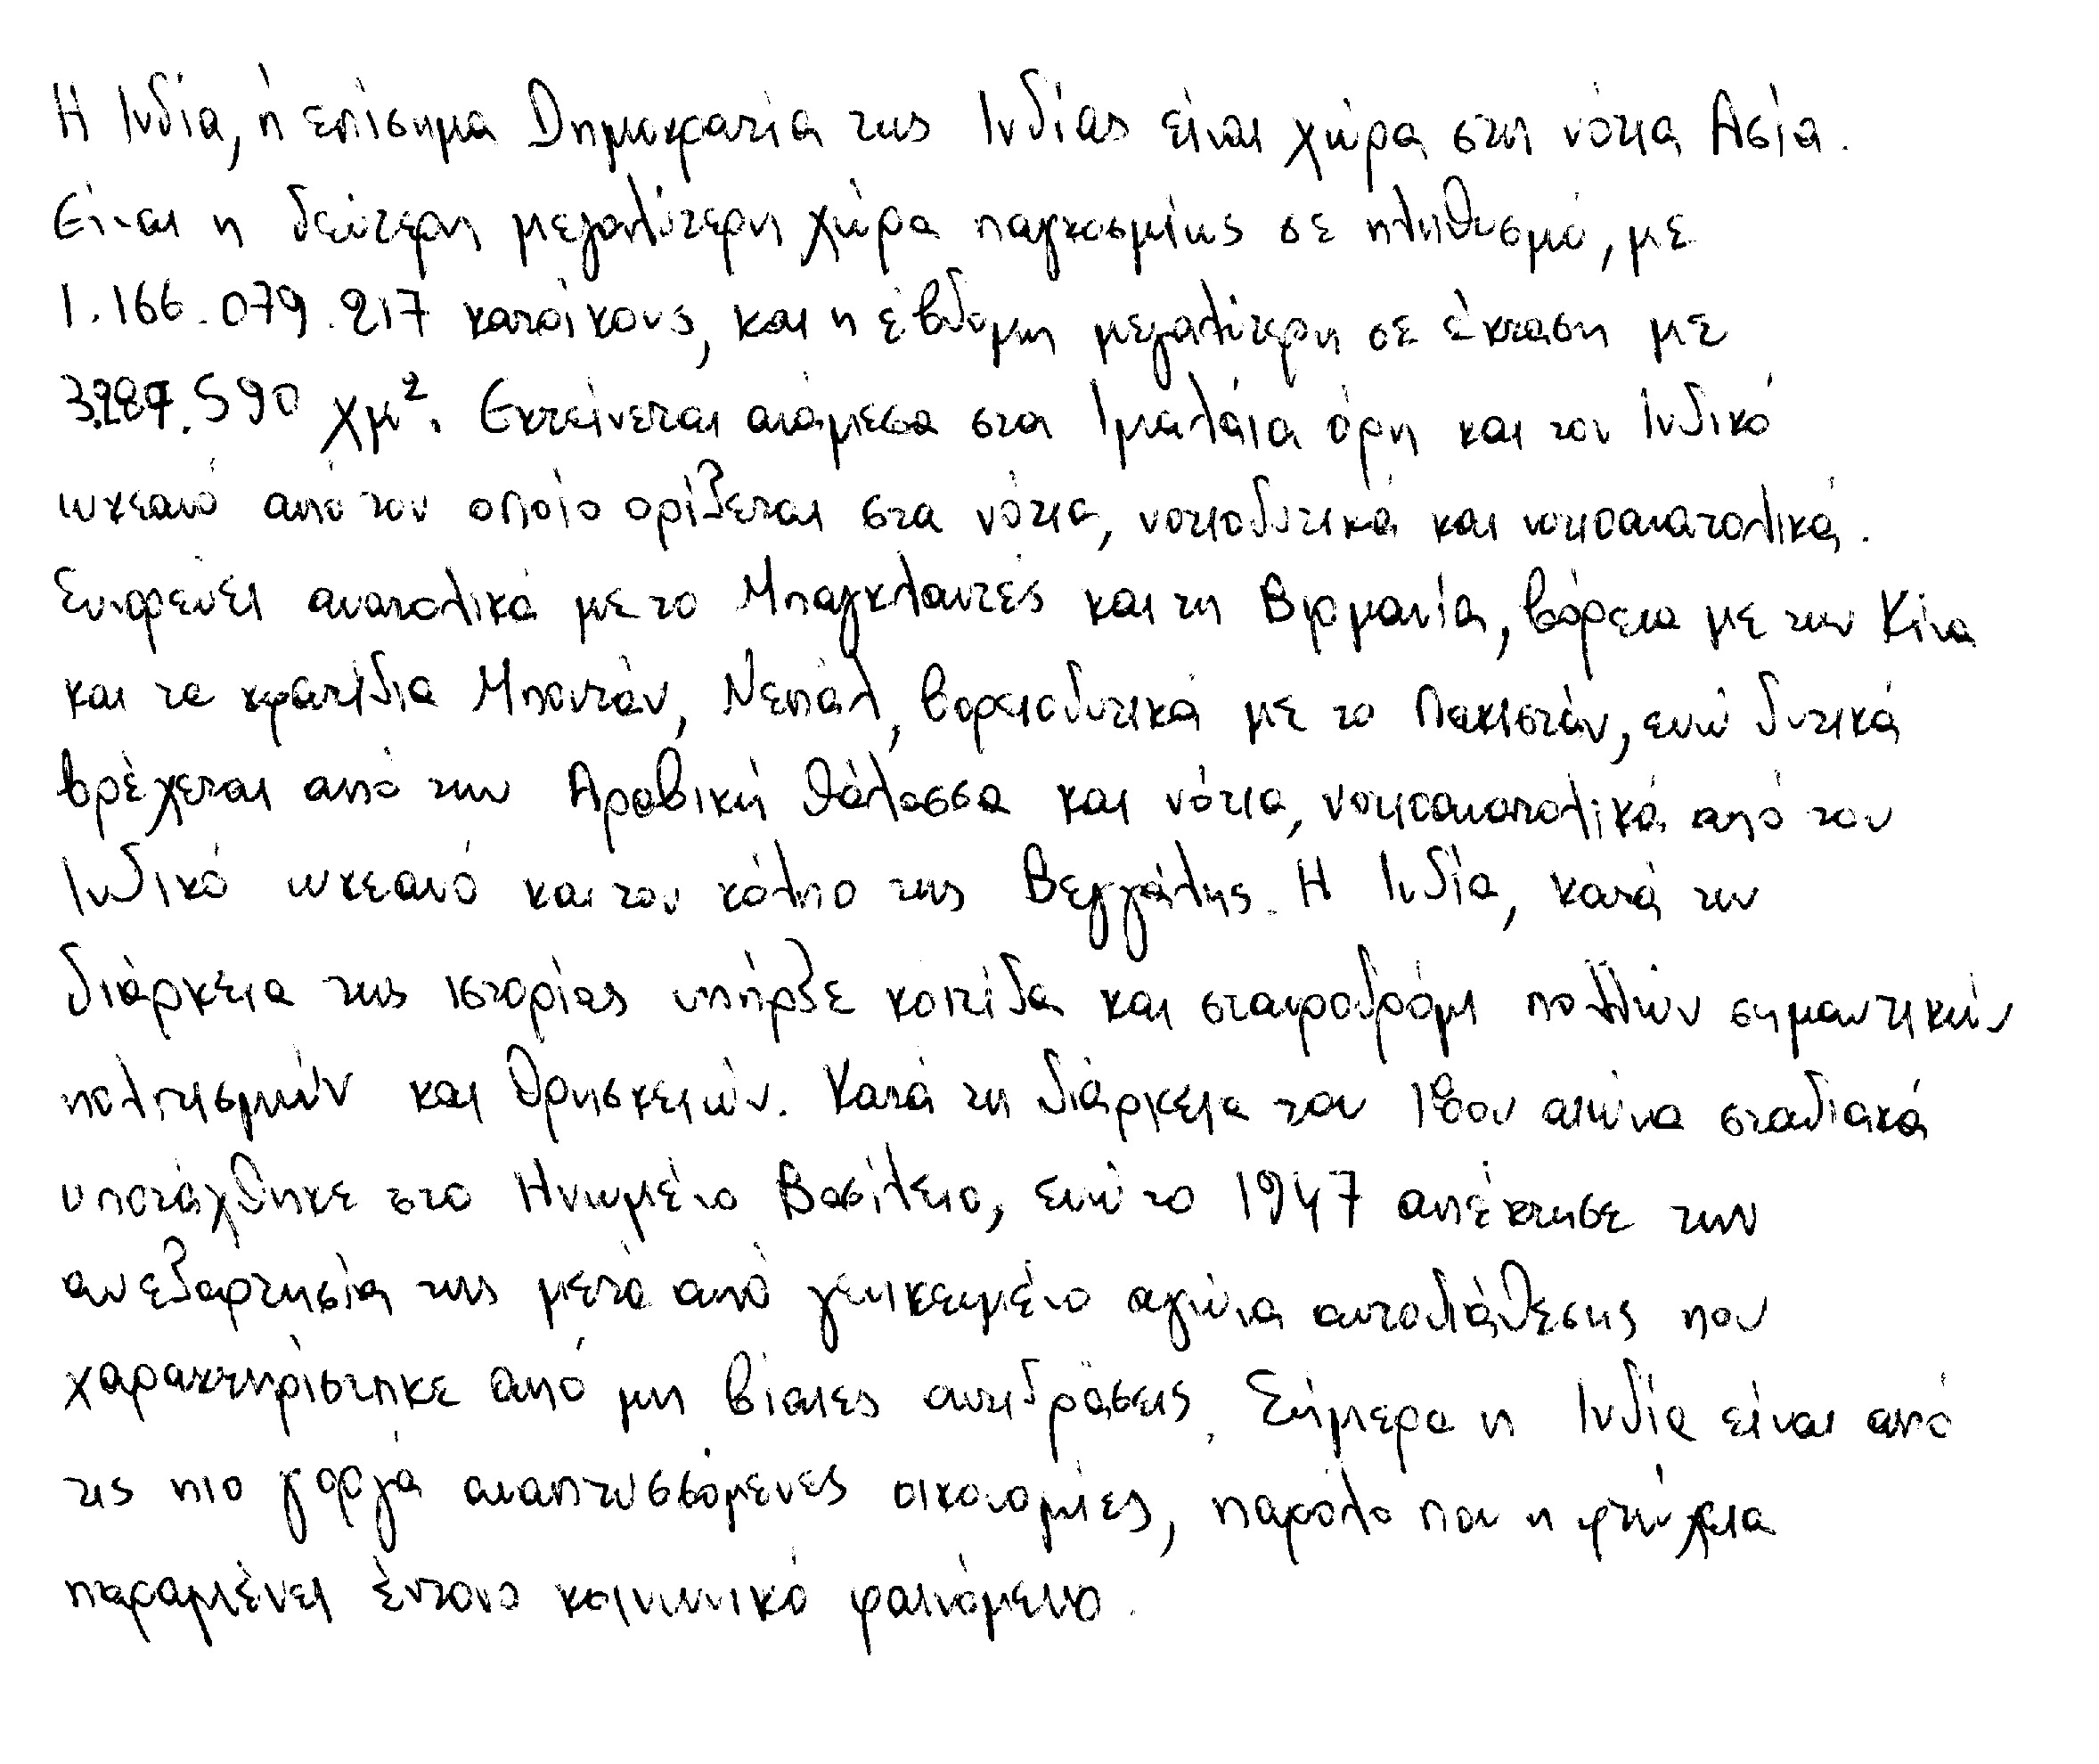 Η Ινδία, ή επίσημα Δημοκρατία της Ινδίας είναι χώρα στη νότια Ασία.
Είναι η δεύτερη μεγαλύτερη χώρα παγκοσμίως σε πληθυσμό, με
1.166.079.217 κατοίκους, και η έβδομη μεγαλύτερη σε έκταση με
3.287.590 χμ². Εκτείνεται ανάμεσα στα Ιμαλάια όρη και τον Ινδικό
ωκεανό από τον οποίο ορίζεται στα νότια, νοτιοδυτικά και νοτιοανατολικά.
Συνορεύει ανατολικά με το Μπαγκλαντές και τη Βιρμανία, βόρεια με την Κίνα
και τα κρατίδια Μπουτάν, Νεπάλ, βορειοδυτικά με το Πακιστάν, ενώ δυτικά
βρέχεται από την Αραβική θάλασσα και νότια, νοτιοανατολικά από τον
Ινδικό ωκεανό και τον κόλπο της Βεγγάλης. Η Ινδία, κατά την
διάρκεια της ιστορίας υπήρξε κοιτίδα και σταυροδρόμι πολλών σημαντικών
πολιτισμών και θρησκειών. Κατά τη διάρκεια του 18ου αιώνα σταδιακά
υποτάχθηκε στο Ηνωμένο Βασίλειο, ενώ το 1947 απέκτησε την
ανεξαρτησία της μετά από γενικευμένο αγώνα αυτοδιάθεσης που
χαρακτηρίστηκε από μη βίαιες αντιδράσεις. Σήμερα η Ινδία είναι από
τις πιο γοργά αναπτυσσόμενες οικονομίες, παρόλο που η φτώχεια
παραμένει έντονο κοινωνικό φαινόμενο.